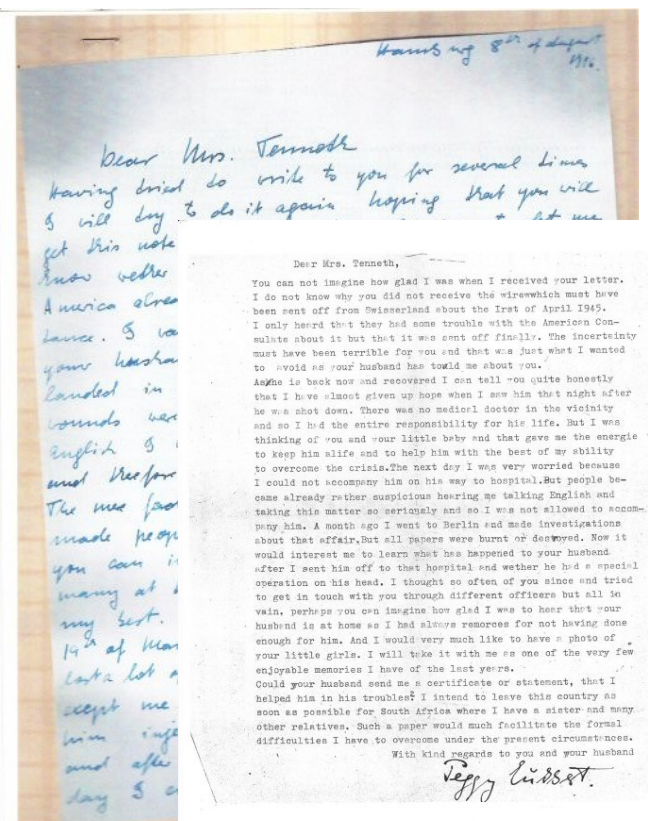 Hamburg 8th of August
Dear Mrs. Tenneth
Having tried do write to you for several times
I will try to do it again hoping that you will
get this note
know wether
America alrea
tance. I
your husba
landed in
wounds were
english I
and therefore
The mee
made peop
you can i
many at
my best.
19th of Mar
lost a lot
except me
him inje
and afte
day I c
Dear Mrs. Tenneth,
You can not imagine how glad I was when I received your letter.
I do not know why you did not receive the wirewhich must have
been sent off from Swisserland about the Irst of April 1945.
I only heard that they had some trouble with the American Con-
sulate about it but that it was sent off finally. The incerteinty
must have been terrible for you and that was just what I wanted
to avoid as your husband has tould me about you.
As he is back now and recovered I can tell you quite honestly
that I have almost given up hope when I saw him that night after
he was shot down. There was no medical doctor in the vicinity
and so I had the entire responsibility for his life. But I was
thinking of you and your little baby and that gave me the energie
to keep him alife and to help him with the best of my ability
to overcome the crisis.The next day I was very worried because
I could not accompany him on his way to hospital.But people be-
came already rather suspicious hearing me talking English and
taking this matter so seriously and so I was not allowed to accom-
pany him. A month ago I went to Berlin and made investigations
about that affair,But all papers were burnt or destroyed. Now it
would interest me to learn what has happened to your husband
after I sent him off to that hospital and wether he had a special
operation on his head. I thought so often of you since and tried
to get in touch with you through different officers but all in
vain, perhaps you can imagine how glad I was to hear that your
husband is at home as I had always remorces for not having done
enough for him. And I would very much like to have a photo of
your little girls. I will take it with me as one of the very few
enjoyable memories I have of the last years.
Could your husband send me a certificate or statement, that I
helped him in his troubles? I intend to leave this country as
soon as possible for South Africa where I have a sister and many
other relatives. Such a paper would much facilitate the formal
difficulties I have to overcome under the present circumstances.
With kind regards to you and your husband
Peggy